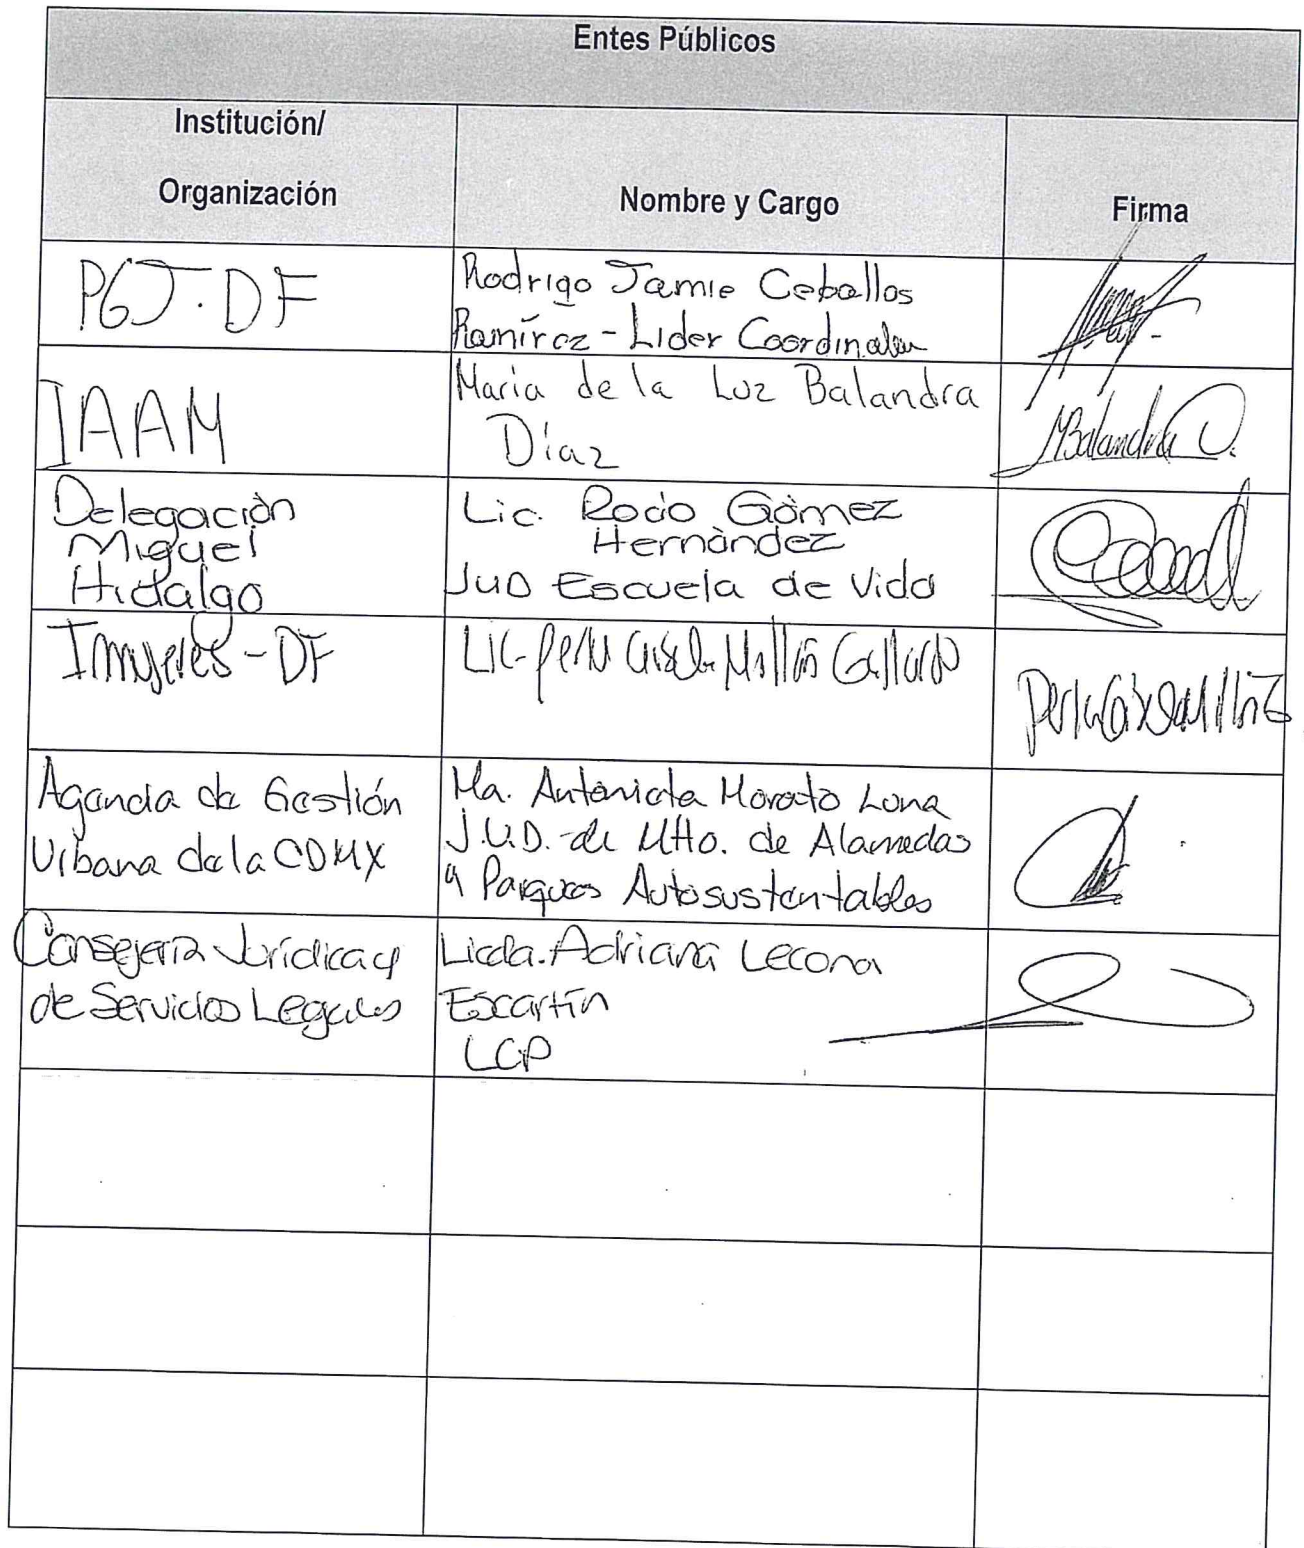 Entes Públicos
Institución/
Organización
Nombre y Cargo
Firma
PGJ.DF
Rodrigo Jamie Ceballos
Ramírez - Lider Coordinador
IAAM
Maria de la Luz Balandra
Díaz
MBalandra D.
Delegación
Miguel
Hidalgo
Lic. Rocio Gómez
Hernández
JUD Escuela de Vida
Inmujeres-DF
Lic. Perla Gisela Gallardo
Agencia de Gestión
Urbana de la CDMX
Ma. Antonieta Morato Luna
J.U.D. de Mtto. de Alamedas
y Parques Autosustentables
Consejería Jurídica y
de Servicios Legales
Licda. Adriana Lecona
Escartín
LCP